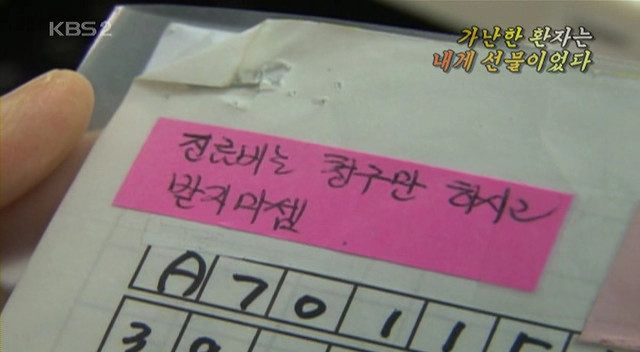 KBS2
가난한 환자는
내게 선물이었다
진료비는 청구만 하시고
받지마셈
A 7 0 1 1